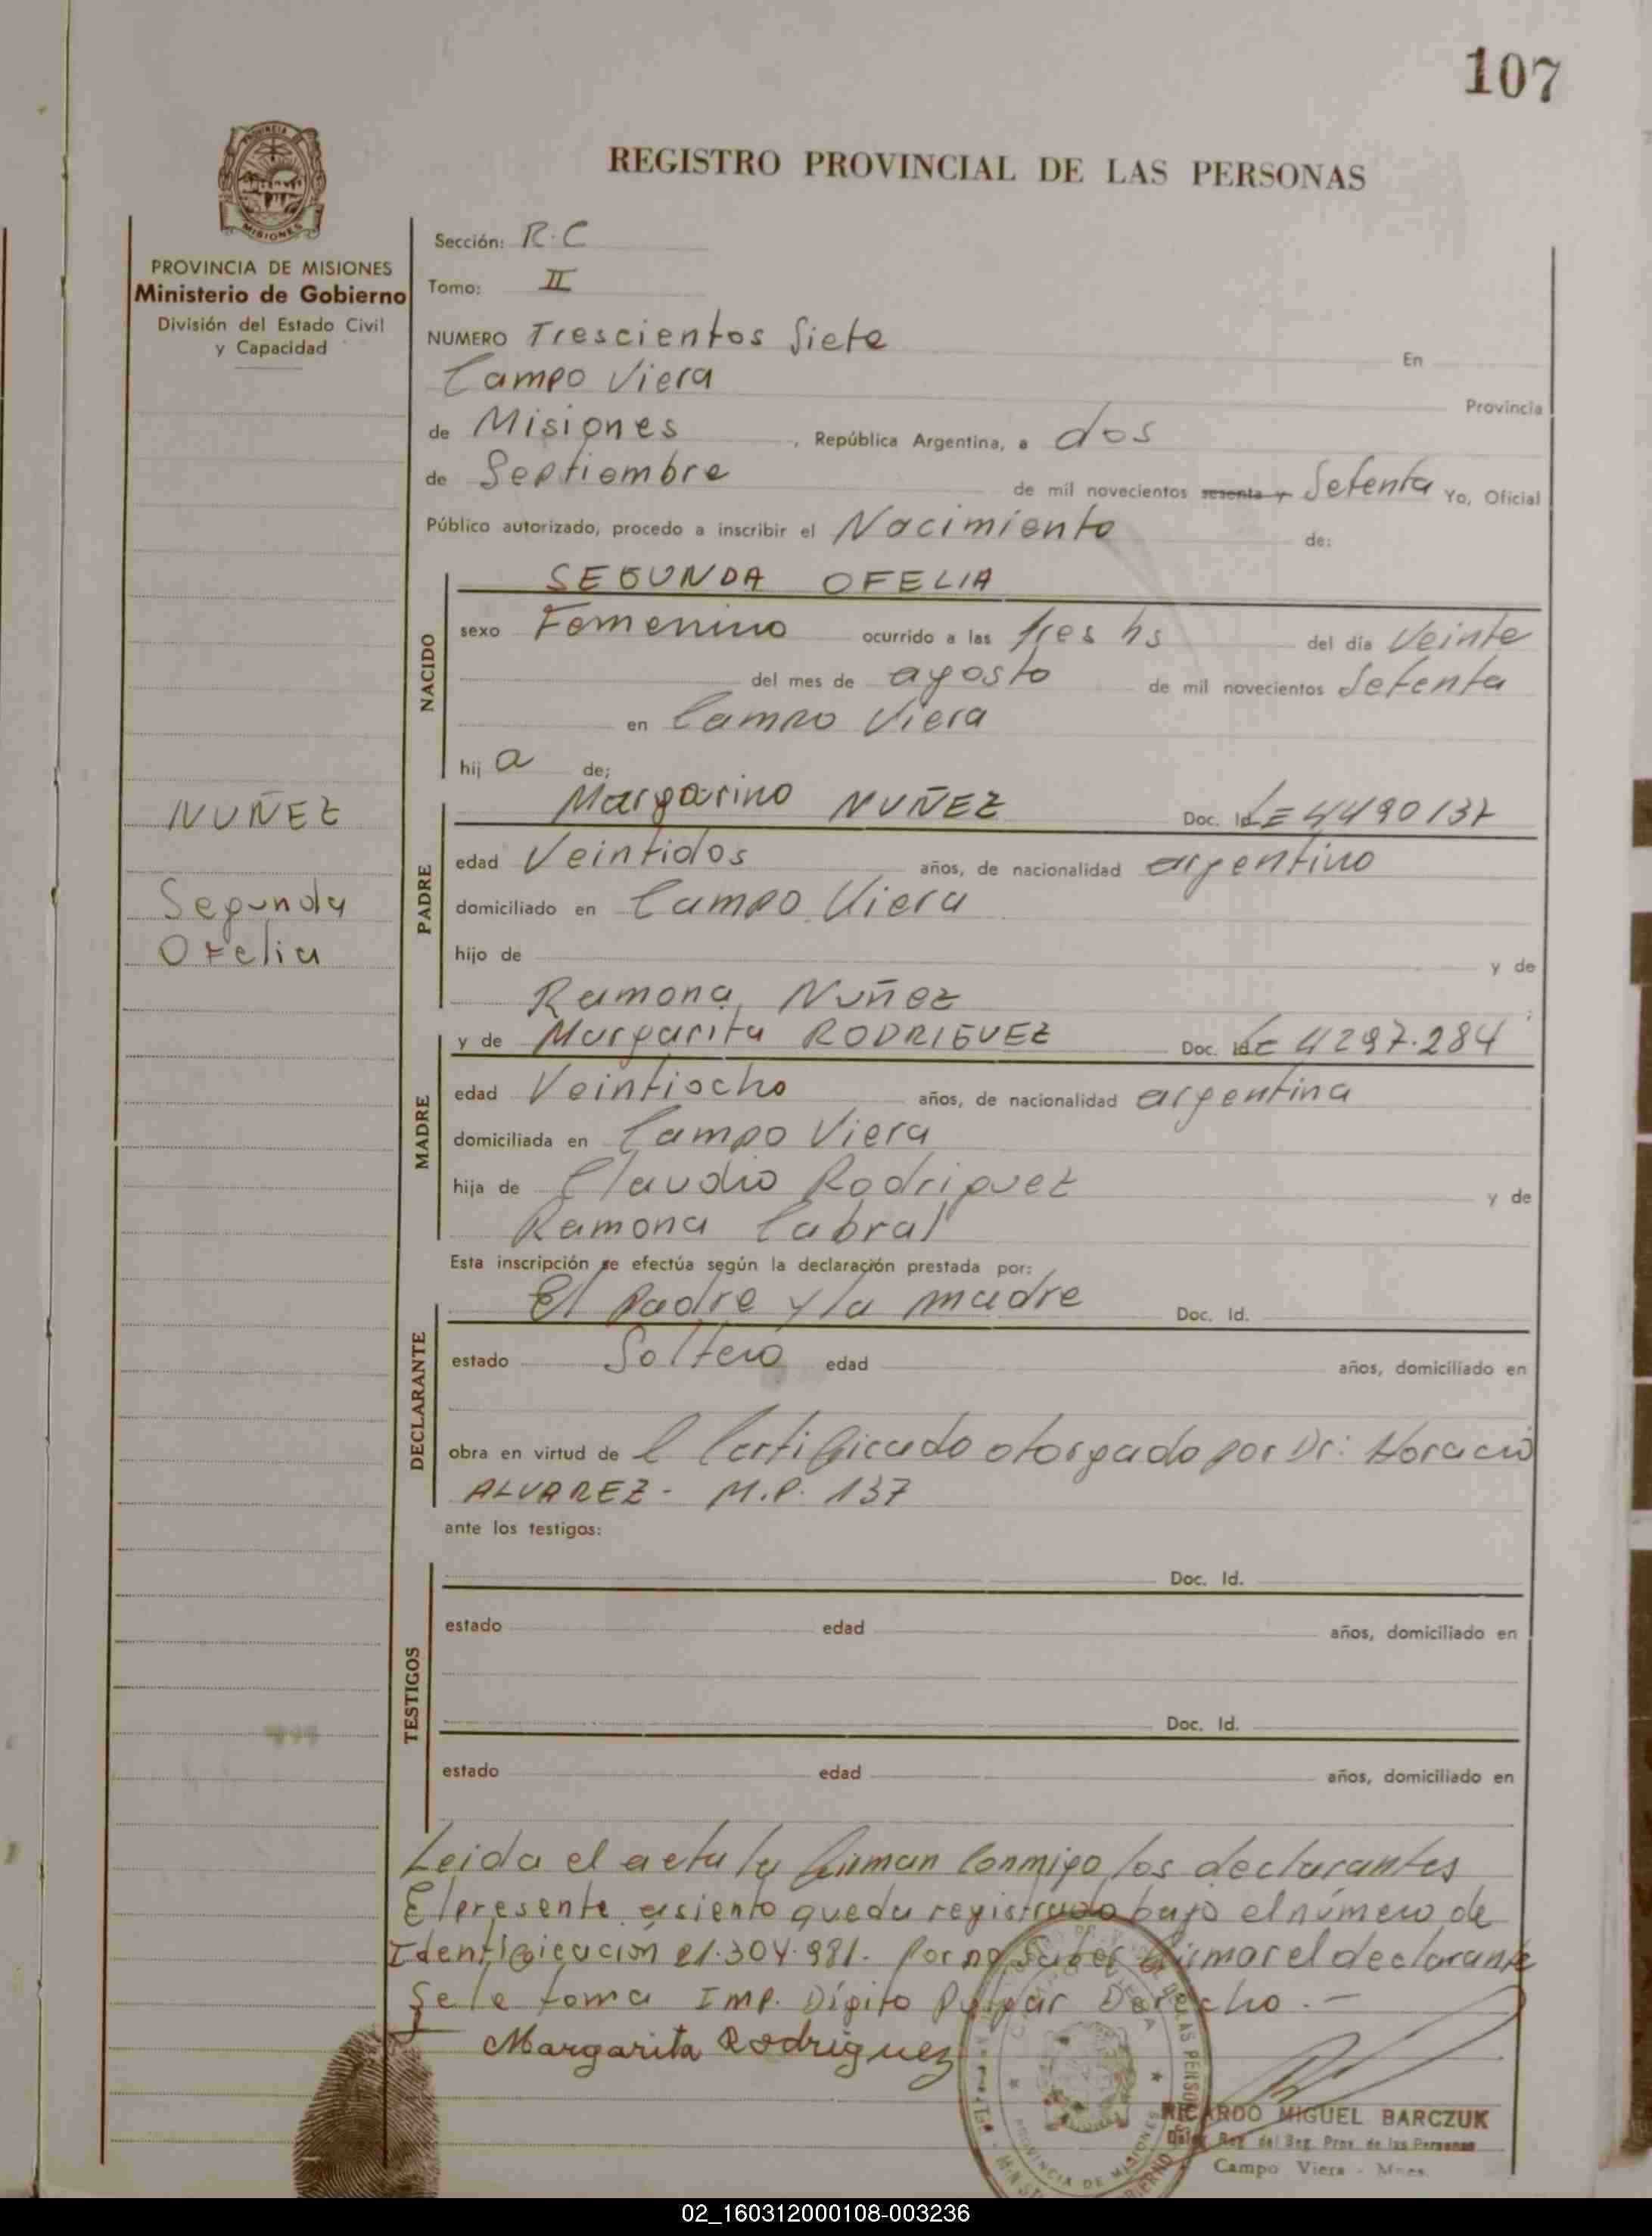 107
REGISTRO PROVINCIAL DE LAS PERSONAS
PROVINCIA DE MISIONES
Ministerio de Gobierno
División del Estado Civil
y Capacidad
Sección: R.C
Tomo: II
NUMERO Trescientos Siete En
Campo Viera Provincia
de Misiones, República Argentina, a dos
de Septiembre de mil novecientos sesenta y Setenta Yo, Oficial
Público autorizado, procedo a inscribir el Nacimiento de:
NACIDO
SEGUNDA OFELIA
sexo Femenino ocurrido a las tres hs del día Veinte
del mes de agosto de mil novecientos Setenta
en Campo Viera
hij a de;
NUÑEZ
Segunda
Ofelia
PADRE
Margarino NUÑEZ Doc. Id. LE 4490137
edad Veintidos años, de nacionalidad argentino
domiciliado en Campo Viera
hijo de y de
Ramona Nuñez ;
MADRE
y de Margarita RODRIGUEZ Doc. Id. LC 4297.284
edad Veintiocho años, de nacionalidad argentina
domiciliada en Campo Viera
hija de Claudio Rodriguez y de
Ramona Cabral
Esta inscripción se efectúa según la declaración prestada por:
DECLARANTE
El Padre y la madre Doc. Id.
estado Soltero edad años, domiciliado en
obra en virtud de l Certificado otorgado por Dr: Horacio
ALVAREZ - M.P. 137
ante los testigos:
TESTIGOS
Doc. Id.
estado edad años, domiciliado en
Doc. Id.
estado edad años, domiciliado en
Leida el acta la firman Conmigo los declarantes
El presente asiento queda registrado bajo el número de
Identificacion 21.304.981. Por no saber firmar el declarante
Se le toma Imp. Digito Pulgar Derecho.-
Margarita Rodriguez
RICARDO MIGUEL BARCZUK
Reg. del Reg. Prov. de las Personas
Campo Viera - Mnes.
PROVINCIA DE MISIONES
02_160312000108-003236